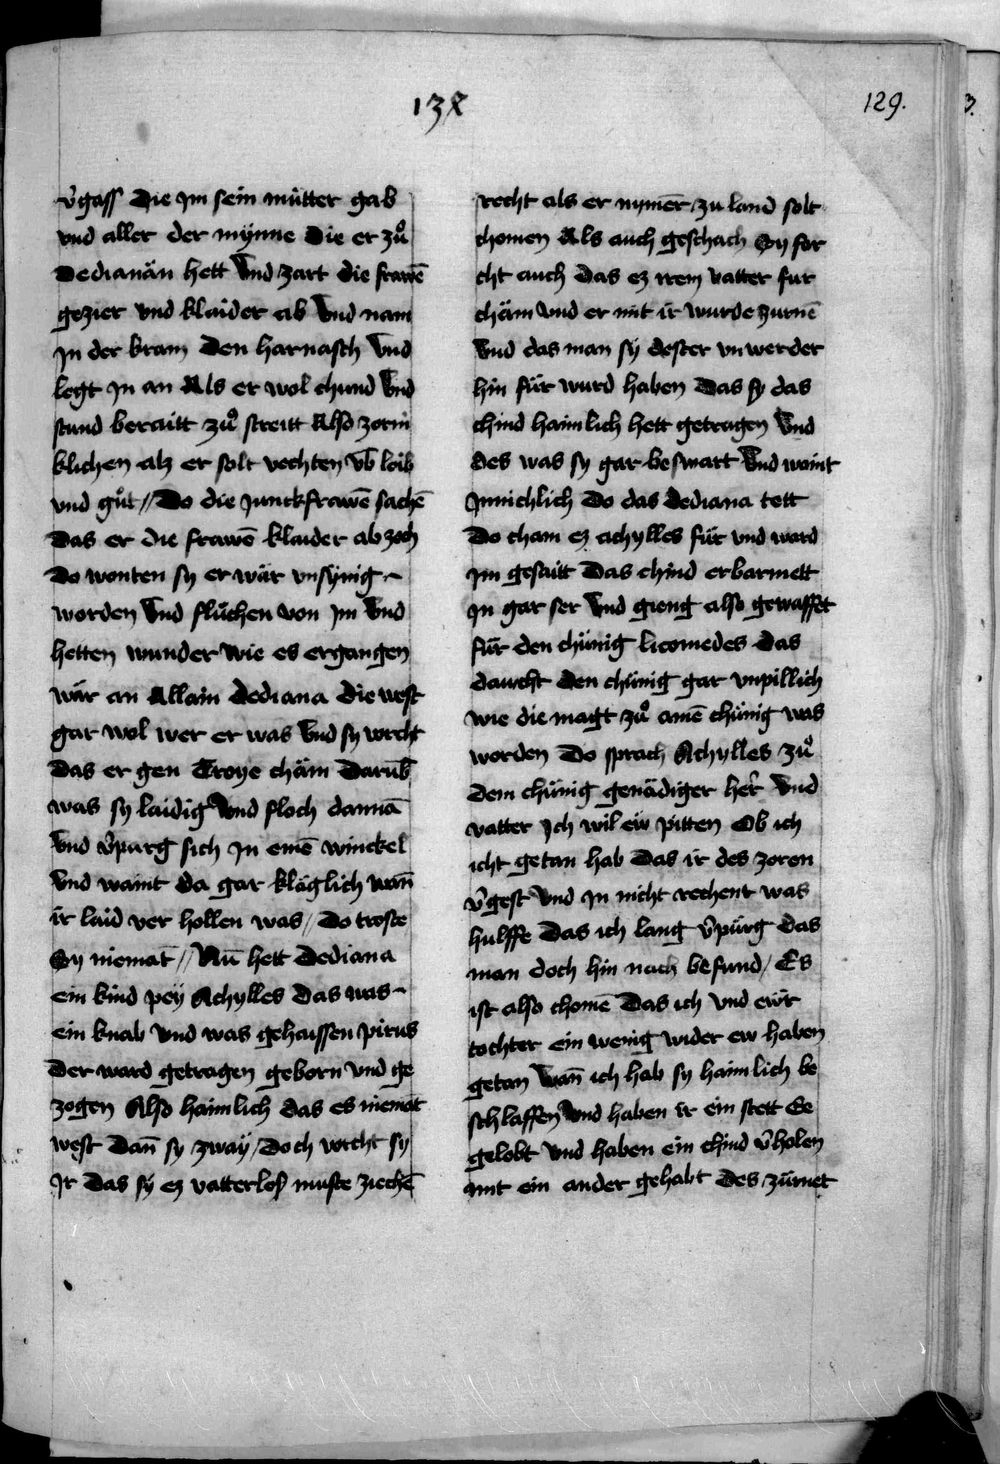 138
129.
v̄gass die Im sein mütter gab
vnd aller der mynne die er zů
Dedianän hett Vnd zart die frawē
gezier vnd klaider ab Vnd nam
In der kram den harnasch Vnd
legt In an Als er wol chund Vnd
stund beraitt zů streitt Also zorni
klichen alz er solt vechten vb̄ loib
vnd gůt // Do die Junckfrawē sachē
Das er die frawē klaider ab zoch
Do wonten sy er wär vnsynig
worden Vnd fluchen von Im Vnd
hetten wunder wie es ergangen
wär an Allain dediana die west
gar wol wer er was Vnd sy vorcht
das er gen Troye chäm Darūb
was sy laidig Vnd floch dannā
Vnd v̄parg sich In einē winckel
Vnd waint da gar kläglich wan̄
ir laid ver hollen was / Do troste
Sy niemāt // Nū hett Dediana
ein kind pey Achylles das was
ein knab Vnd was gehaissen pirus
Der ward getragen geborn vnd ge
zogen Also haimlich das es niemāt
west dan̄ sy zway / Doch vorcht sy
Ir das sy ez vatterlos muste ziechē
recht als er nymēr zu land solt
chomen Als auch geschach Sy for
cht auch das ez irem vatter fur
chäm vnd er mit ir wurde zurnē
Vnd das man sy dester vnwerder
hin für wurd haben Das sy das
chind haimlich hett getragen Vnd
des was sy gar beswart Vnd waint
Innichlich Do das dediana tett
Do cham ez achylles für vnd ward
Im gesaitt Das chind erbarmett
In gar ser Vnd gieng also gewaffet
für den chünig licomedes Das
daucht den chünig gar vnpillich
wie die magt zů ainē chünig was
worden Do sprach Achylles zů
dem chünig genädiger her̄ Vnd
vatter Ich wil ew pitten Ob ich
icht getan hab das ir des zoren
v̄gest Vnd In nicht rechent was
hulffe Das ich lang v̄pürg das
man doch hin nach befund / Es
ist also chomē Das ich vnd ewr
tochter ein wenig wider ew haben
getan Wan̄ ich hab sy haimlich be
schlaffen Vnd haben ir ein stett Ee
gelobt vnd haben ein chind v̄holen
mit ein ander gehabt des zürnet